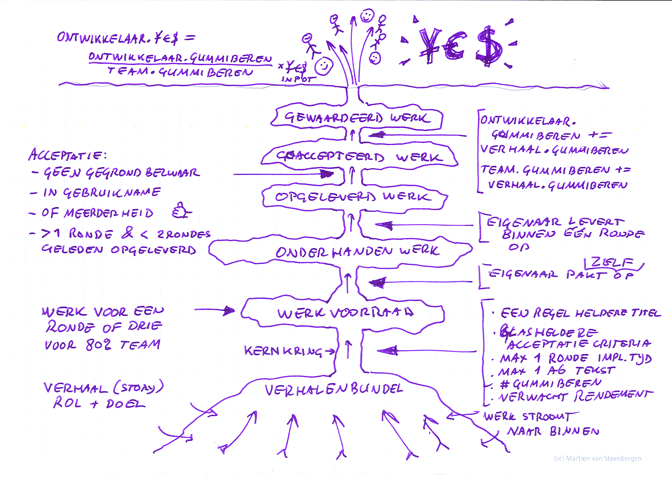 ONTWIKKELAAR.¥€$ =
ONTWIKKELAAR.GUMMIBEREN
TEAM.GUMMIBEREN
× ¥€$
INPUT
¥€$
GEWAARDEERD WERK
GEACCEPTEERD WERK
OPGELEVERD WERK
ONDERHANDEN WERK
WERKVOORRAAD
KERNKRING
VERHALENBUNDEL
ACCEPTATIE:
- GEEN GEGROND BEZWAAR
- IN GEBRUIKNAME
- OF MEERDERHEID
- >1 RONDE & < 2 RONDES
GELEDEN OPGELEVERD
WERK VOOR EEN
RONDE OF DRIE
VOOR 80% TEAM
VERHAAL (STORY)
ROL + DOEL
ONTWIKKELAAR.
GUMMIBEREN +=
VERHAAL.GUMMIBEREN
TEAM.GUMMIBEREN +=
VERHAAL.GUMMIBEREN
EIGENAAR LEVERT
BINNEN ÉÉN RONDE
OP
ZELF
EIGENAAR PAKT OP
· EEN REGEL HELDERE TITEL
· GLASHELDERE
ACCEPTATIE CRITERIA
· MAX 1 RONDE IMPL.TIJD
· MAX 1 A6 TEKST
· # GUMMIBEREN
· VERWACHT RENDEMENT
WERK STROOMT
NAAR BINNEN
(cc) Martien van Steenbergen